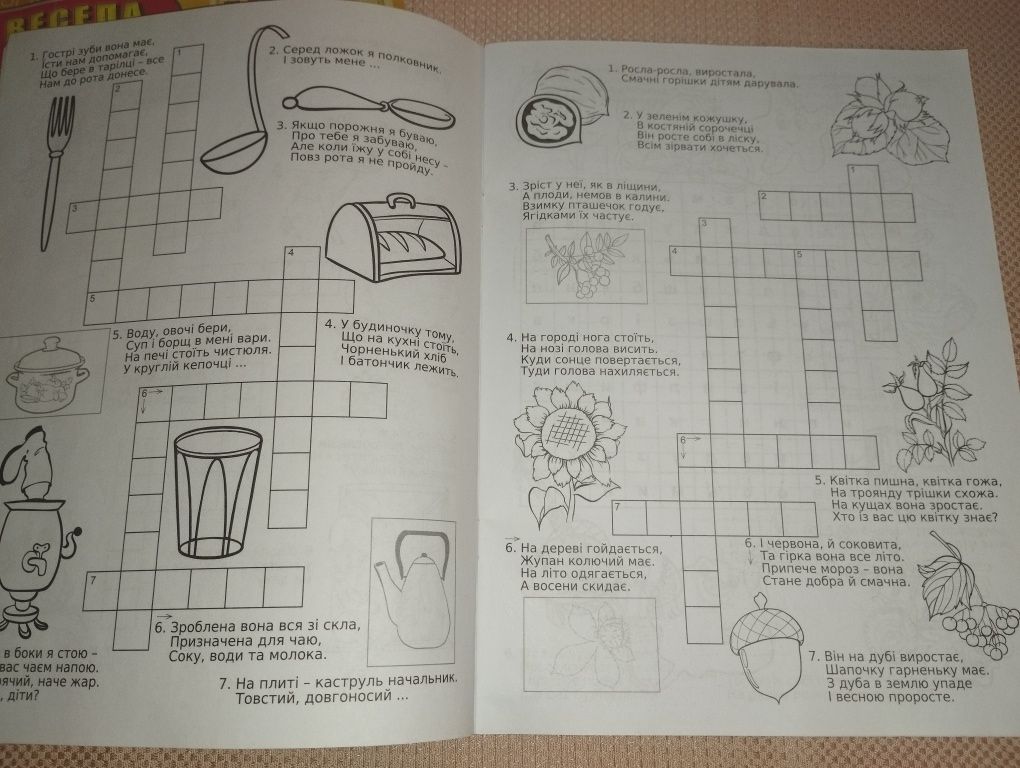 ВЕСЕЛА
1. Гострі зуби вона має,
Їсти нам допомагає,
Що бере в тарілці – все
Нам до рота донесе.
2. Серед ложок я полковник.
І зовуть мене ...
3. Якщо порожня я буваю,
Про тебе я забуваю,
Але коли їжу у собі несу –
Повз рота я не пройду.
1
2
3
4
5
5. Воду, овочі бери,
Суп і борщ в мені вари.
На печі стоїть чистюля.
У круглій кепочці ...
4. У будиночку тому,
Що на кухні стоїть,
Чорненький хліб
І батончик лежить.
6
7
6. Зроблена вона вся зі скла,
Призначена для чаю,
Соку, води та молока.
в боки я стою –
вас чаєм напою.
наче жар.
, діти?
7. На плиті – каструль начальник.
Товстий, довгоносий ...
1. Росла-росла, виростала,
Смачні горішки дітям дарувала.
2. У зеленім кожушку,
В костяній сорочечці
Він росте собі в ліску,
Всім зірвати хочеться.
3. Зріст у неї, як в ліщини,
А плоди, немов в калини.
Взимку пташечок годує,
Ягідками їх частує.
1
2
3
4
5
4. На городі нога стоїть,
На нозі голова висить.
Куди сонце повертається,
Туди голова нахиляється.
6
7
5. Квітка пишна, квітка гожа,
На троянду трішки схожа.
На кущах вона зростає.
Хто із вас цю квітку знає?
6. На дереві гойдається,
Жупан колючий має.
На літо одягається,
А восени скидає.
6. І червона, й соковита,
Та гірка вона все літо.
Припече мороз – вона
Стане добра й смачна.
7. Він на дубі виростає,
Шапочку гарненьку має.
З дуба в землю упаде
І весною проросте.